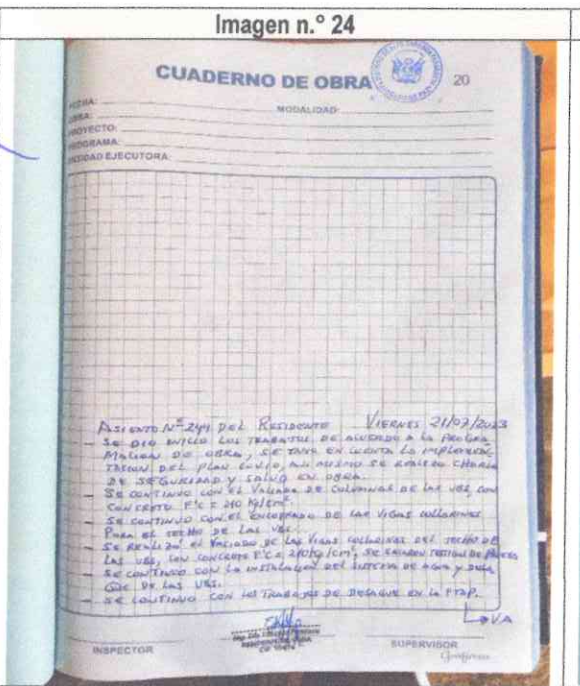 Imagen n.° 24
CUADERNO DE OBRA
20
FECHA:
OBRA:
MODALIDAD:
PROYECTO:
PROGRAMA:
ENTIDAD EJECUTORA:
ASIENTO Nº 244 DEL RESIDENTE VIERNES 21/07/2023
- SE DIO INICIO LOS TRABAJOS DE ACUERDO A LA PROGRA
MACION DE OBRA, SE TUVO EN CUENTA LA IMPLEMEN
TACION DEL PLAN COVID, ASI MISMO SE REALIZO CHARLA
DE SEGURIDAD Y SALUD EN OBRA.
- SE CONTINUO CON EL VACIADO DE COLUMNAS DE LAS UBS, CON
CONCRETO F'C = 210 Kg/cm².
- SE CONTINUO CON EL ENCOFRADO DE LAS VIGAS COLLARINES
PARA EL TECHO DE LAS UBS.
- SE REALIZÓ EL VACIADO DE LAS VIGAS COLLARINES DEL TECHO DE
LAS UBS, CON CONCRETO F'C = 210 Kg/cm², SE
- SE CONTINUO CON LA INSTALACION DEL SISTEMA DE AGUA Y DESA
GUE DE LAS UBS.
- SE CONTINUO CON LOS TRABAJOS DE DESAGUE EN LA PTAP.
INSPECTOR
RESIDENTE DE OBRA
SUPERVISOR